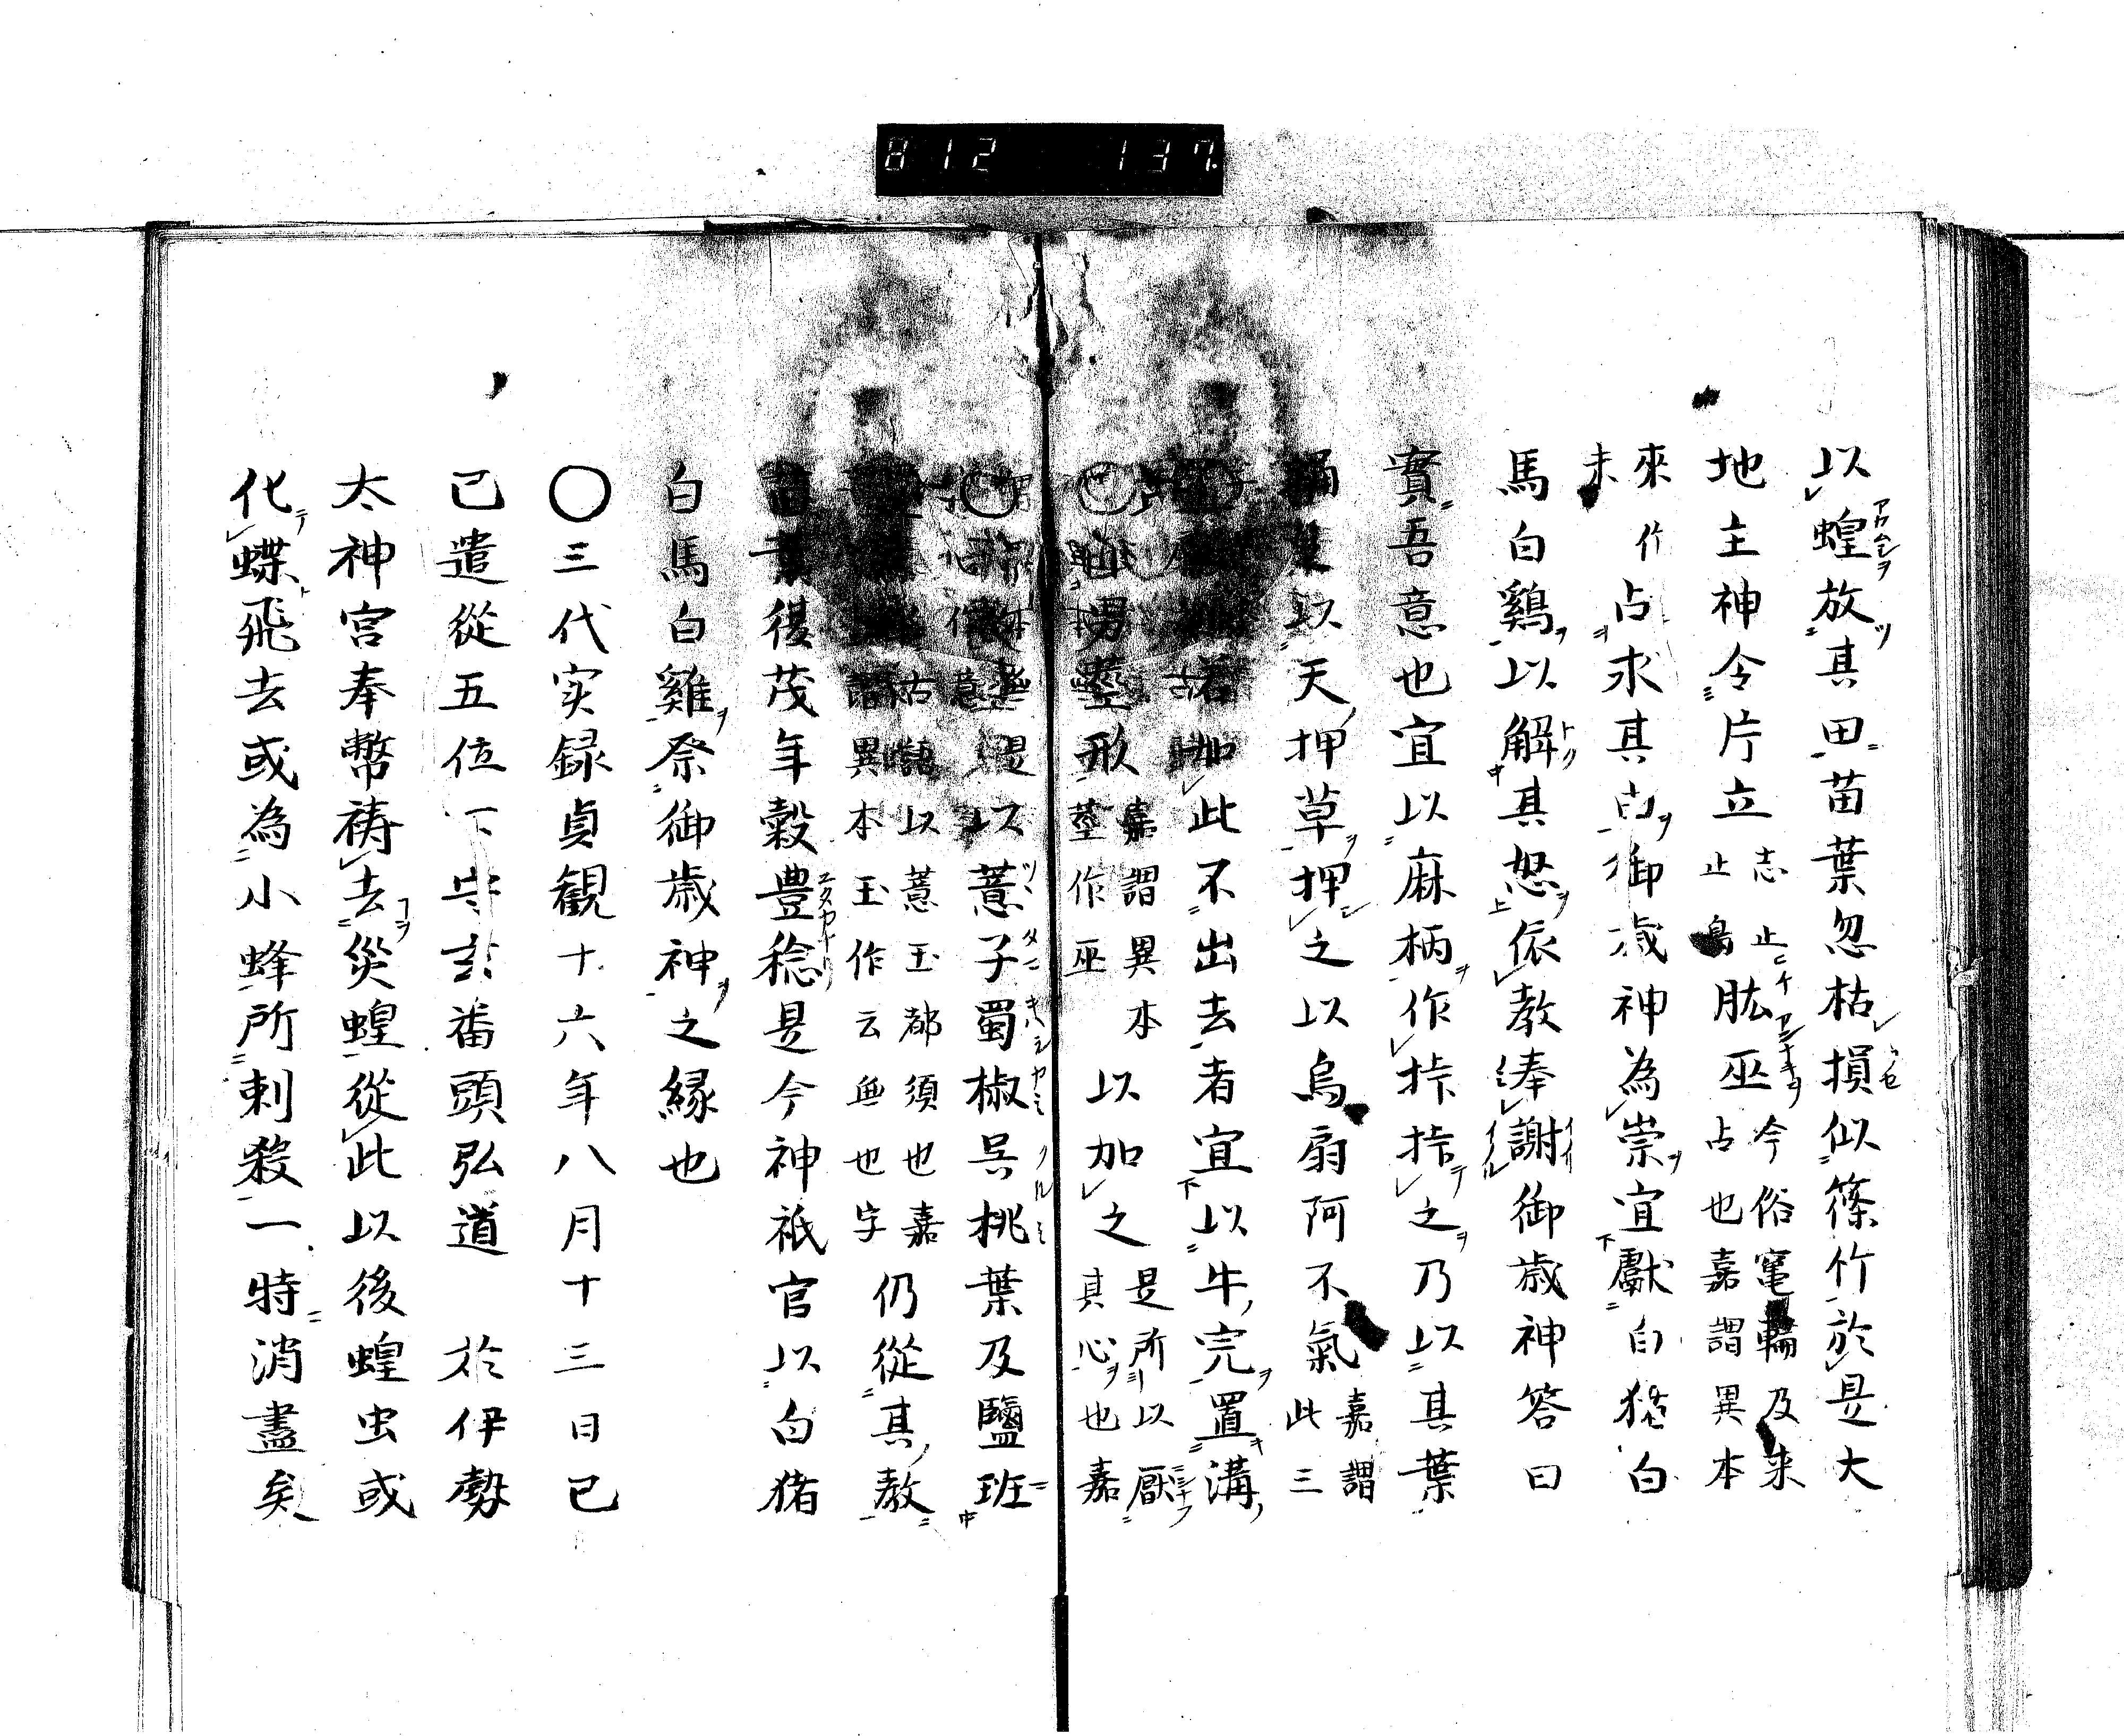 812 137
以蝗放其田苗葉忽枯損似篠竹於是大
地主神令片立志止止鳥肱巫今俗竃輪及来占也嘉謂異本
來作未占求其由御歳神為崇宜獻白猪白
馬白鷄以解其怒依教奉謝御歳神答曰
實吾意也宜以麻柄作挊挊之乃以其葉
以天押草押之以烏扇阿不氣嘉謂此三
如此不出去者宜以牛完置溝
男莖形嘉謂異本莖作巫以加之是所以厭其心也嘉
是以薏子蜀椒呉桃葉及鹽班
古語以薏玉都須也嘉謂異本玉作云無也字仍從其教
苗葉復茂年穀豊稔是今神祇官以白猪
白馬白雞祭御歳神之縁也
〇三代実録貞観十六年八月十三日己
已遣從五位下守玄番頭弘道 於伊勢
太神宮奉幣祷去災蝗從此以後蝗虫或
化蝶飛去或為小蜂所刺殺一時消盡矣